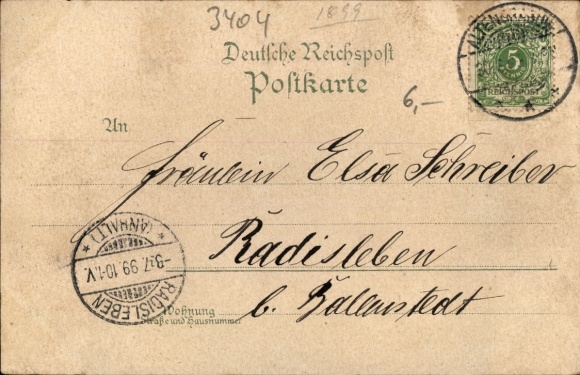 3404
1899
Deutsche Reichspost
Postkarte
5
REICHSPOST
6,-
An
Fräulein Elsa Schreiber
Radisleben
b. Ballenstedt
Wohnung
Straße und Hausnummer
RADISLEBEN
* (ANHALT) *
-8.7. 99. 10-1.V.